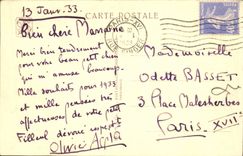 13 Janv. 33.
CARTE POSTALE
Bien chère Marraine
Merci bien tendrement
pour votre beau petit chien
qui m'amuse beaucoup.
Mille souhaits pour 1933
et mille pensées très
affectueuses de votre petit
Filleul
Mademoiselle
Odette BASSET
3 Place Malesherbes
Paris XVII